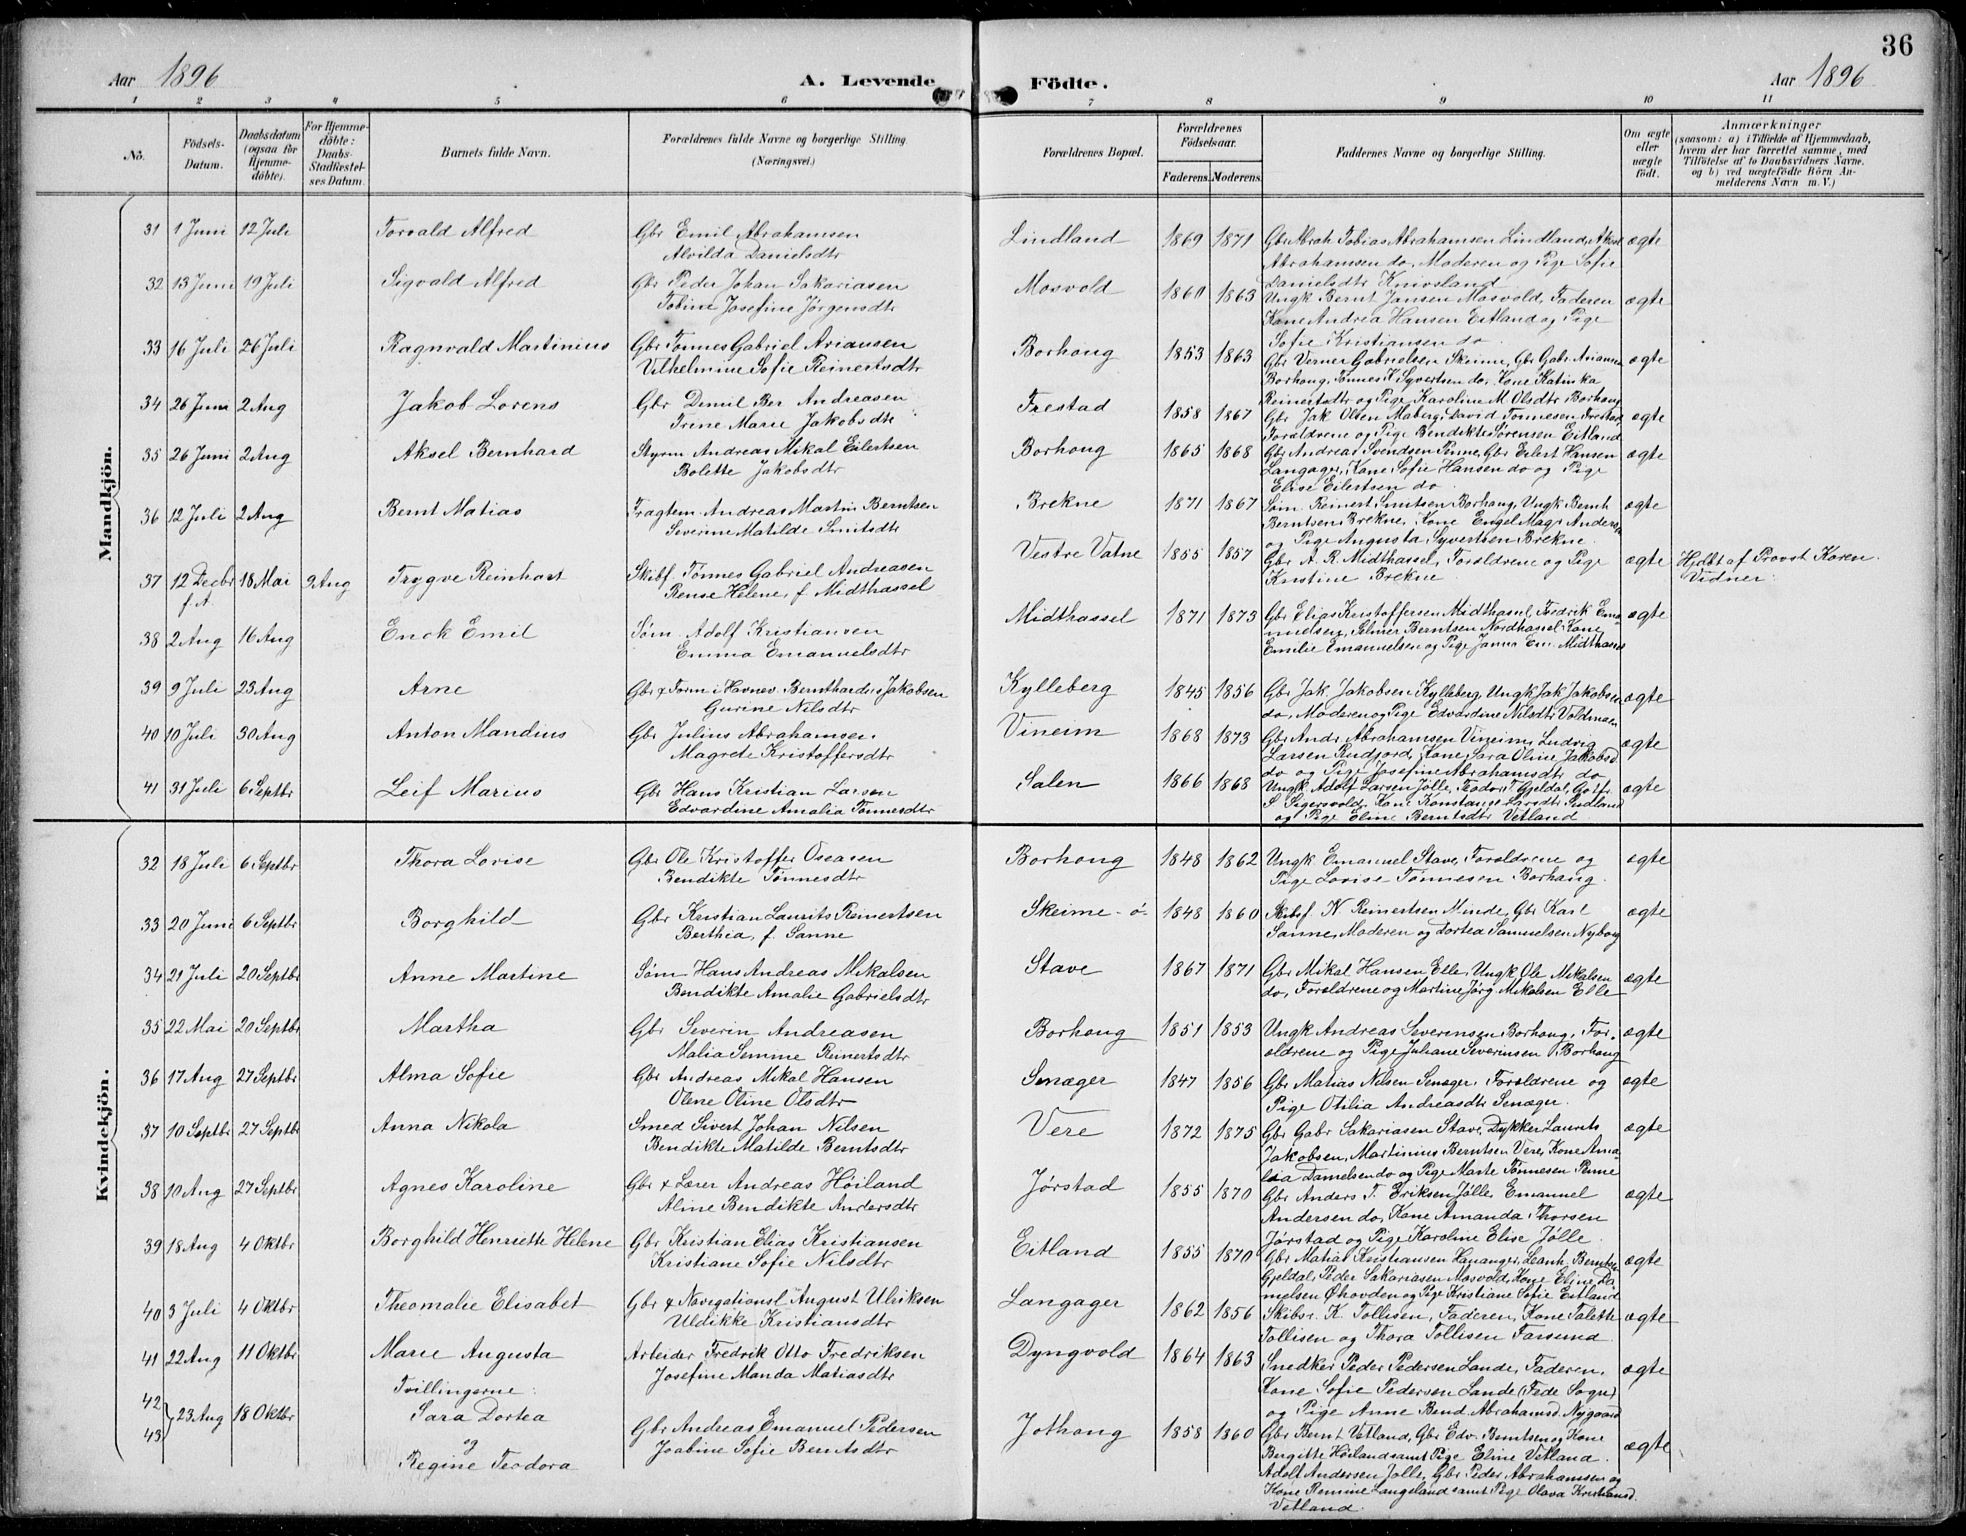 36
Aar 1896 A. Levende Födte. Aar 1896
1 2 3 4 5 6 7 8 9 10 11
No.
Födsels-Datum.
Daabsdatum (ogsaa for Hjemmedöbte).
For Hjemmedöbte: Daabs-Stadfæstelses Datum.
Barnets fulde Navn.
Forældrenes fulde Navne og borgerlige Stilling (Næringsvei.)
Forældrenes Bopæl.
Forældrenes Födselsaar. Faderens. Moderens.
Faddernes Navne og borgerlige Stilling.
Om ægte eller uægte födt.
Anmærkninger (saasom: a) i Tilfælde af Hjemmedaab, hvem der har forrettet samme, med Tilföielse af to Daabsvidners Navne. og b) ved uægtefödte Börn Anmelderens Navn m. V.)
Mandkjön.
31 1 Juni 12 Juli Torvald Alfred Gbr Emil Abrahamsen Lindland 1869 1871 Gbr Abrah. Tobias Abrahamsen Lindland, Aksel ægte
Alvilda Danielsdtr Abrahamsen do, Moderen og Pige Sofie
Danielsdtr Knivsland
32 13 Juni 19 Juli Sigvald Alfred Gbr Peder Johan Sakariasen Mosvold 1860 1863 Ungk Bernt Jansen Mosvold, Faderen ægte
Tobine Josefine Jørgensdtr Kone Andrea Hansen Eitland og Pige
Sofie Kristiansen do
33 16 Juli 26 Juli Ragnvald Martinius Gbr Tønnes Gabriel Ariansen Borhaug 1853 1863 Gbr Verner Gabrielsen Skeime, Gbr Gabr. Ariansen ægte
Vilhelmine Sofie Reinertsdtr Borhaug, Tønnes K Syvertsen do, Kone Katinka
Reinertsdtr og Pige Karoline M. Olsdtr Borhaug
34 26 Juni 2 Aug Jakob Lorens Gbr Ber Andreasen Frestad 1858 1867 Gbr Jak Olsen Maberg, David Tønnesen Frestad, ægte
Trine Marie Jakobsdtr Forældrene og Pige Bendikte Sørensen Eitland
35 26 Juni 2 Aug Aksel Bernhard Styrm Andreas Mikal Eilertsen Borhaug 1865 1868 Gbr Andreas Svendsen Penne, Gbr Eilert Hansen ægte
Bolette Jakobsdtr Langager, Kone Sofie Hansen do og Pige
Elise Eilertsen do
36 12 Juli 2 Aug Bernt Matias Fragtem. Andreas Martin Berntsen Brekne 1871 1867 Søm. Reinert Smitsen Borhaug, Ungk Bernt ægte
Severine Matilde Smitsdtr Berntsen Brekne, Kone Engel Magr Anders
og Pige Augusta Syvertsen Brekne
37 12 Decbr 18 Mai 2 Aug Trygve Reinhart Skibf. Tønnes Gabriel Andreasen Vestre Vatne 1855 1857 Gbr A. R. Midthassel, Forældrene og Pige ægte Hjdbt af Provst Koren.
f. A. Rense Helene, f. Midthassel Kristine Brekne Vidner:
38 2 Aug 16 Aug Enok Emil Søm. Adolf Kristiansen Midthassel 1871 1873 Gbr Elias Kristoffersen Midthassel, Fredrik Ema- ægte
Emma Emanuelsdtr nuelsen, Selmer Berntsen Nordhassel, Kone
Emilie Emanuelsen og Pige Janna Em. Midthassel
39 9 Juli 23 Aug Arne Gbr & Form i Havnev. Bernthardus Jakobsen Kylleberg 1845 1856 Gbr Jak. Jakobsen Kylleberg, Ungk Jak Jakobsen ægte
Gurine Nilsdtr do, Moderen og Pige Edvardine Nilsdtr
40 10 Juli 30 Aug Anton Mandius Gbr Julius Abrahamsen Vineim 1868 1873 Gbr Andr. Abrahamsen Vineim, Ludvig ægte
Magrete Kristoffersdtr Larsen Rudjord, Kone Sara Oline Jakobsd
do og Pige Josefine Abrahamsdtr do
41 31 Juli 6 Septbr Leif Marius Gbr Hans Kristian Larsen Salen 1866 1868 Ungk Adolf Larsen Jølle, Teodor T Gjeldal, Gotfr. ægte
Edvardine Amalia Tønnesdtr S Sigersvold, Kone Konstanse Larsdtr
og Pige Eline Berntsdtr Vetland
Kvindekjön.
32 18 Juli 6 Septbr Thora Lovise Gbr Ole Kristoffer Oseasen Borhaug 1848 1862 Ungk Emanuel Stave, Forældrene og ægte
Bendikte Tønnesdtr Pige Lovise Tønnesen Borhaug.
33 20 Juni 6 Septbr Borghild Gbr Kristian Laurits Reinertsen Skeime-ø- 1848 1860 Skibsf. N. Reinertsen Minde, Gbr Karl ægte
Berthea, f. Sanne Sanne, Moderen og Dortea Samuelsen Nyborg
34 21 Juli 20 Septbr Anne Martine Søm Hans Andreas Mikalsen Stave 1867 1871 Gbr Mikal Hansen Elle, Ungk Ole Mikalsen ægte
Bendikte Amalie Gabrielsdtr do, Forældrene og Martine Jørg Mikalsen Elle
35 22 Mai 20 Septbr Martha Gbr Severin Andreasen Borhaug 1851 1853 Ungk Andreas Severinsen Borhaug, For- ægte
Malia Semme Reinertsdtr ældrene og Pige Juliane Severinsen Borhaug
36 17 Aug 27 Septbr Alma Sofie Gbr Andreas Mikal Hansen Snæger 1847 1856 Gbr Matias Nilsen Snæger, Forældrene og ægte
Olene Oline Olsdtr Pige Otilia Andreasdtr Snæger.
37 10 Septbr 27 Septbr Anna Nikola Smed Sivert Johan Nilsen Vere 1872 1875 Gbr Gabr Sakariasen Stave, Dykker Laurits ægte
Bendikte Matilde Berntsdtr Jakobsen, Martinius Berntsen Vere, Kone Ama-
lia Danielsen do og Pige Marte Tønnesen Penne
38 10 Aug 27 Septbr Agnes Karoline Gbr & Lærer Andreas Höiland Jørstad 1855 1870 Gbr Anders T. Eriksen Jølle, Emanuel ægte
Aline Bendikte Andersdtr Andersen do, Kone Amanda Thorsen
Jørstad og Pige Karoline Elise Jølle.
39 18 Aug 4 Oktbr Borghild Henriette Helene Gbr Kristian Elias Kristiansen Eitland 1855 1870 Gbr Matias Kristiansen Hananger, Leanh. Berntsen ægte
Kristiane Sofie Nilsdtr Gjeldal, Peder Sakariasen Mosvold, Kone Eline Da-
nielsen Øhovden og Pige Kristiane Sofie Eitland
40 3 Juli 4 Oktbr Theomalie Elisabet Gbr & Navigationsl August Ulriksen Langager 1862 1856 Skibsr. K. Tollisen, Faderen, Kone Talette ægte
Uldikke Kristiansdtr Tollisen og Thora Tollisen Farsund.
41 22 Aug 11 Oktbr Marie Augusta Arbeider Fredrik Otto Fredriksen Dyngvold 1864 1863 Snedker Peder Pedersen Lande, Faderen, ægte
Josefine Manda Matiasdtr Kone Sofie Pedersen Lande (Fede Sogn)
og Pige Anne Bend. Abrahamsd. Nygaard
Tvillingerne:
42 43 23 Aug 18 Oktbr Sara Dortea Gbr Andreas Emanuel Pedersen Jothaug 1858 1860 Gbr Bernt Vetland, Gbr Edv. Berntsen og Kone ægte
og Joabine Sofie Berntsdtr Bergitte Höiland samt Pige Eline Vetland.
Regine Teodora Adolf Andersen Jølle, Gbr Peder Abrahamsen og
Kone Remine Langeland samt Pige Olava Kristiansd.
Vetland.